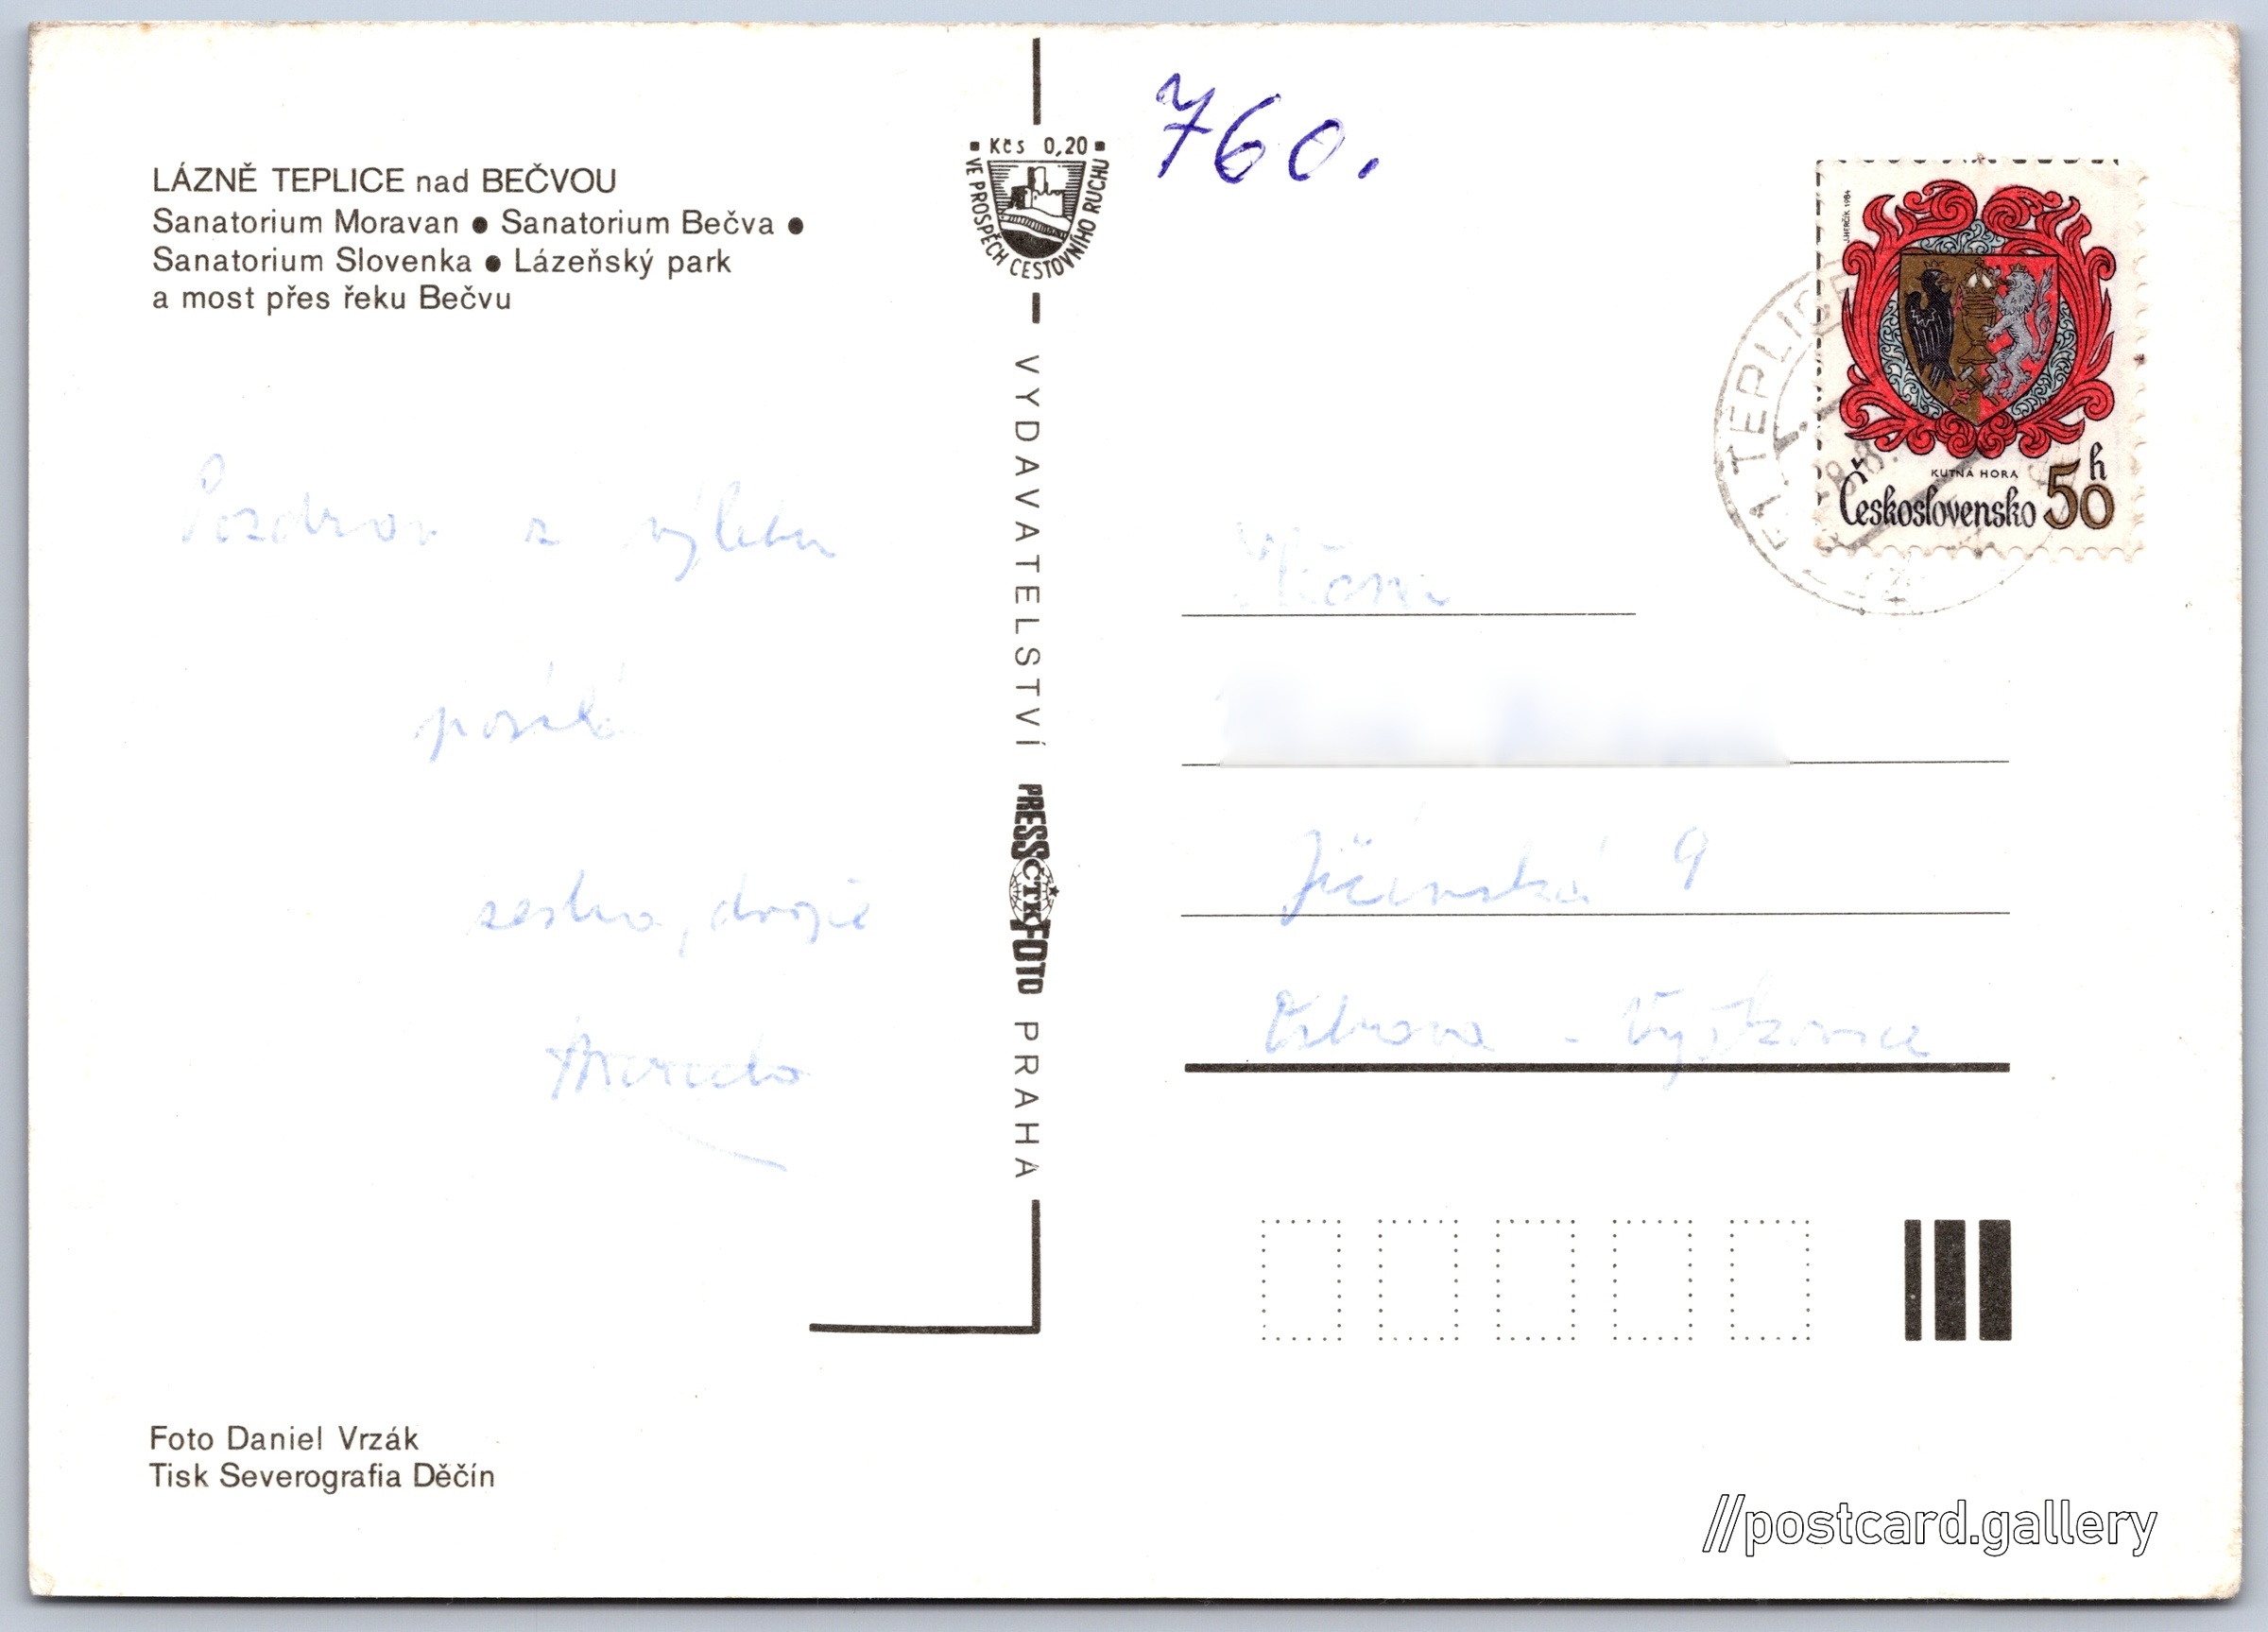 LÁZNĚ TEPLICE nad BEČVOU
Sanatorium Moravan ● Sanatorium Bečva ●
Sanatorium Slovenka ● Lázeňský park
a most přes řeku Bečvu
Pozdrav z výletu
posílá
Foto Daniel Vrzák
Tisk Severografia Děčín
Kčs 0,20
VE PROSPĚCH CESTOVNÍHO RUCHU
VYDAVATELSTVÍ PRESSFOTO PRAHA
ČTK
760.
J. HERČÍK 1984
KUTNÁ HORA
Československo 50 h
TEPLICE
Jičínská 9
Ostrava - Výškovice
//postcard.gallery